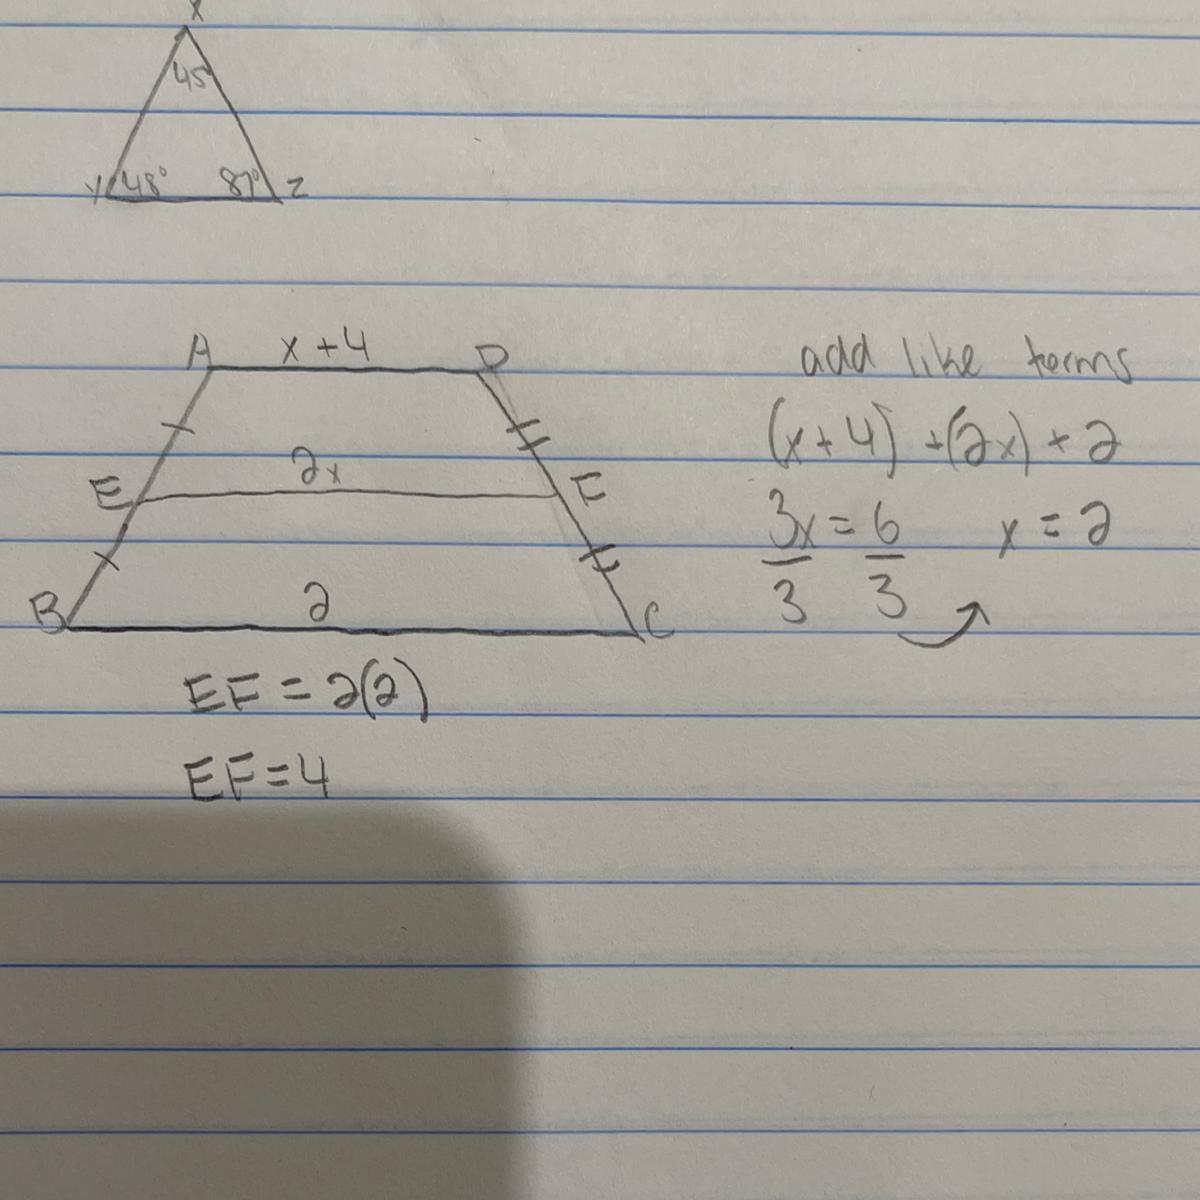 X
45
Y 48° 87° Z
A x + 4 D
E 2x F
B 2 C
EF = 2(2)
EF = 4
add like terms
(x + 4) + (2x) + 2
3x = 6 x = 2
3 3